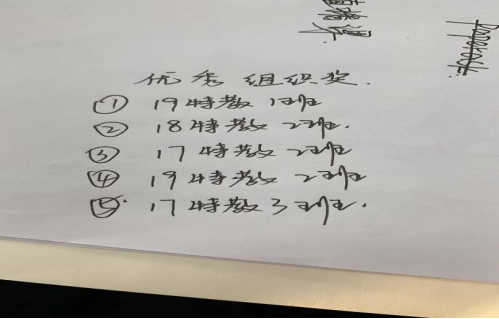 优秀组织奖.
① 19特教1班
② 18特教2班.
③ 17特教2班
④ 19特教2班
⑤ 17特教3班.